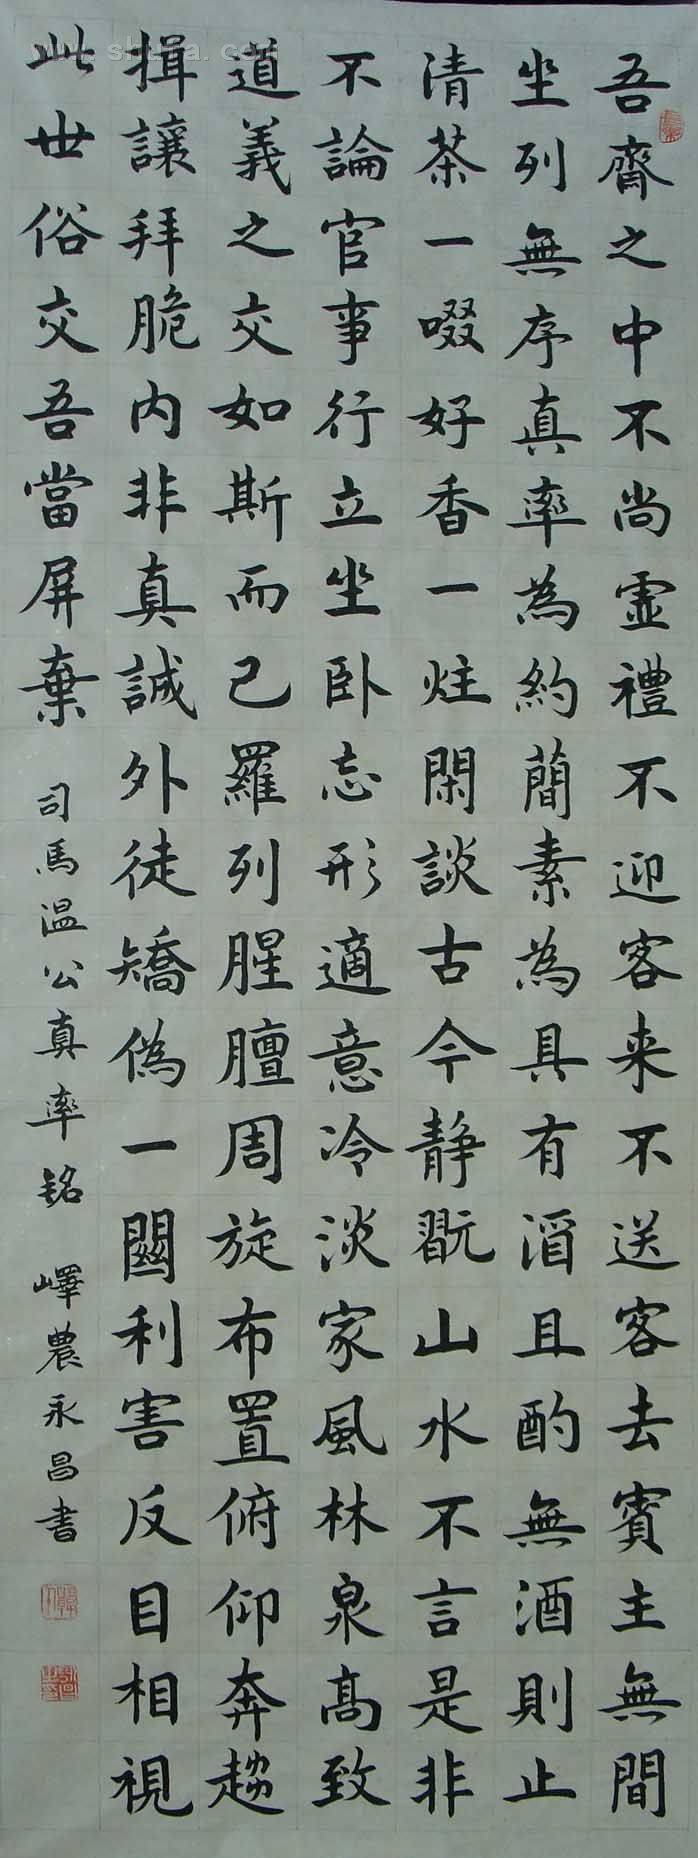 吾齋之中不尚虚禮不迎客来不送客去賓主無間
坐列無序真率為約蕳素為具有酒且酌無酒則止
清茶一啜好香一炷閑談古今静翫山水不言是非
不論官事行立坐卧忘形適意冷淡家風林泉髙致
道義之交如斯而已羅列腥膻周旋布置俯仰奔趨
揖讓拜脆内非真誠外徒矯偽一關利害反目相視
此世俗交吾當屏棄 司馬温公真率铭 嶧農永昌書
www.shufa.com